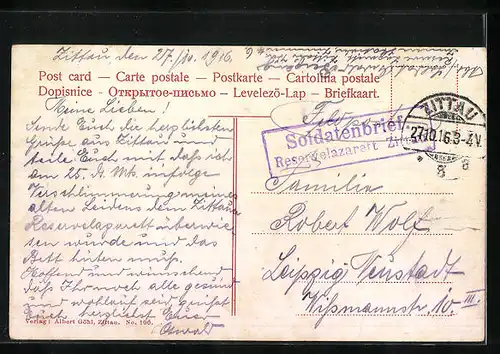 Zittau den 27./10. 1916.
Post card — Carte postale — Postkarte — Cartolina postale
Dopisnice - Открытое-письмо — Levelezö-Lap — Briefkaart.
Meine Lieben!
Sende Euch die herzlichsten
Grüße aus Zittau und
teile Euch mit daß ich
am 25. d. Mts. infolge
Verschlimmerung meines
alten Leidens dem Zittauer
Reservelazarett überwie-
sen wurde und das
Bett hüten muß.
Hoffend und wünschend
daß Ihr noch alle gesund
und wohlauf seid grüßt
Euch herzlichst Euer
Oswald
Verlag: Albert Göhl, Zittau. No. 106.
Soldatenbrief
Reservelazarett Zittau
ZITTAU
27.10.16.3-4V.
Familie
Robert Wolf
Leipzig Neustadt
Wißmannstr. 10 III.